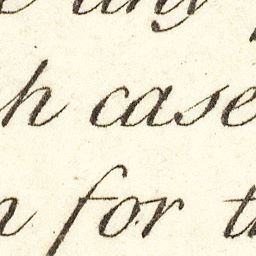 any
h case
for